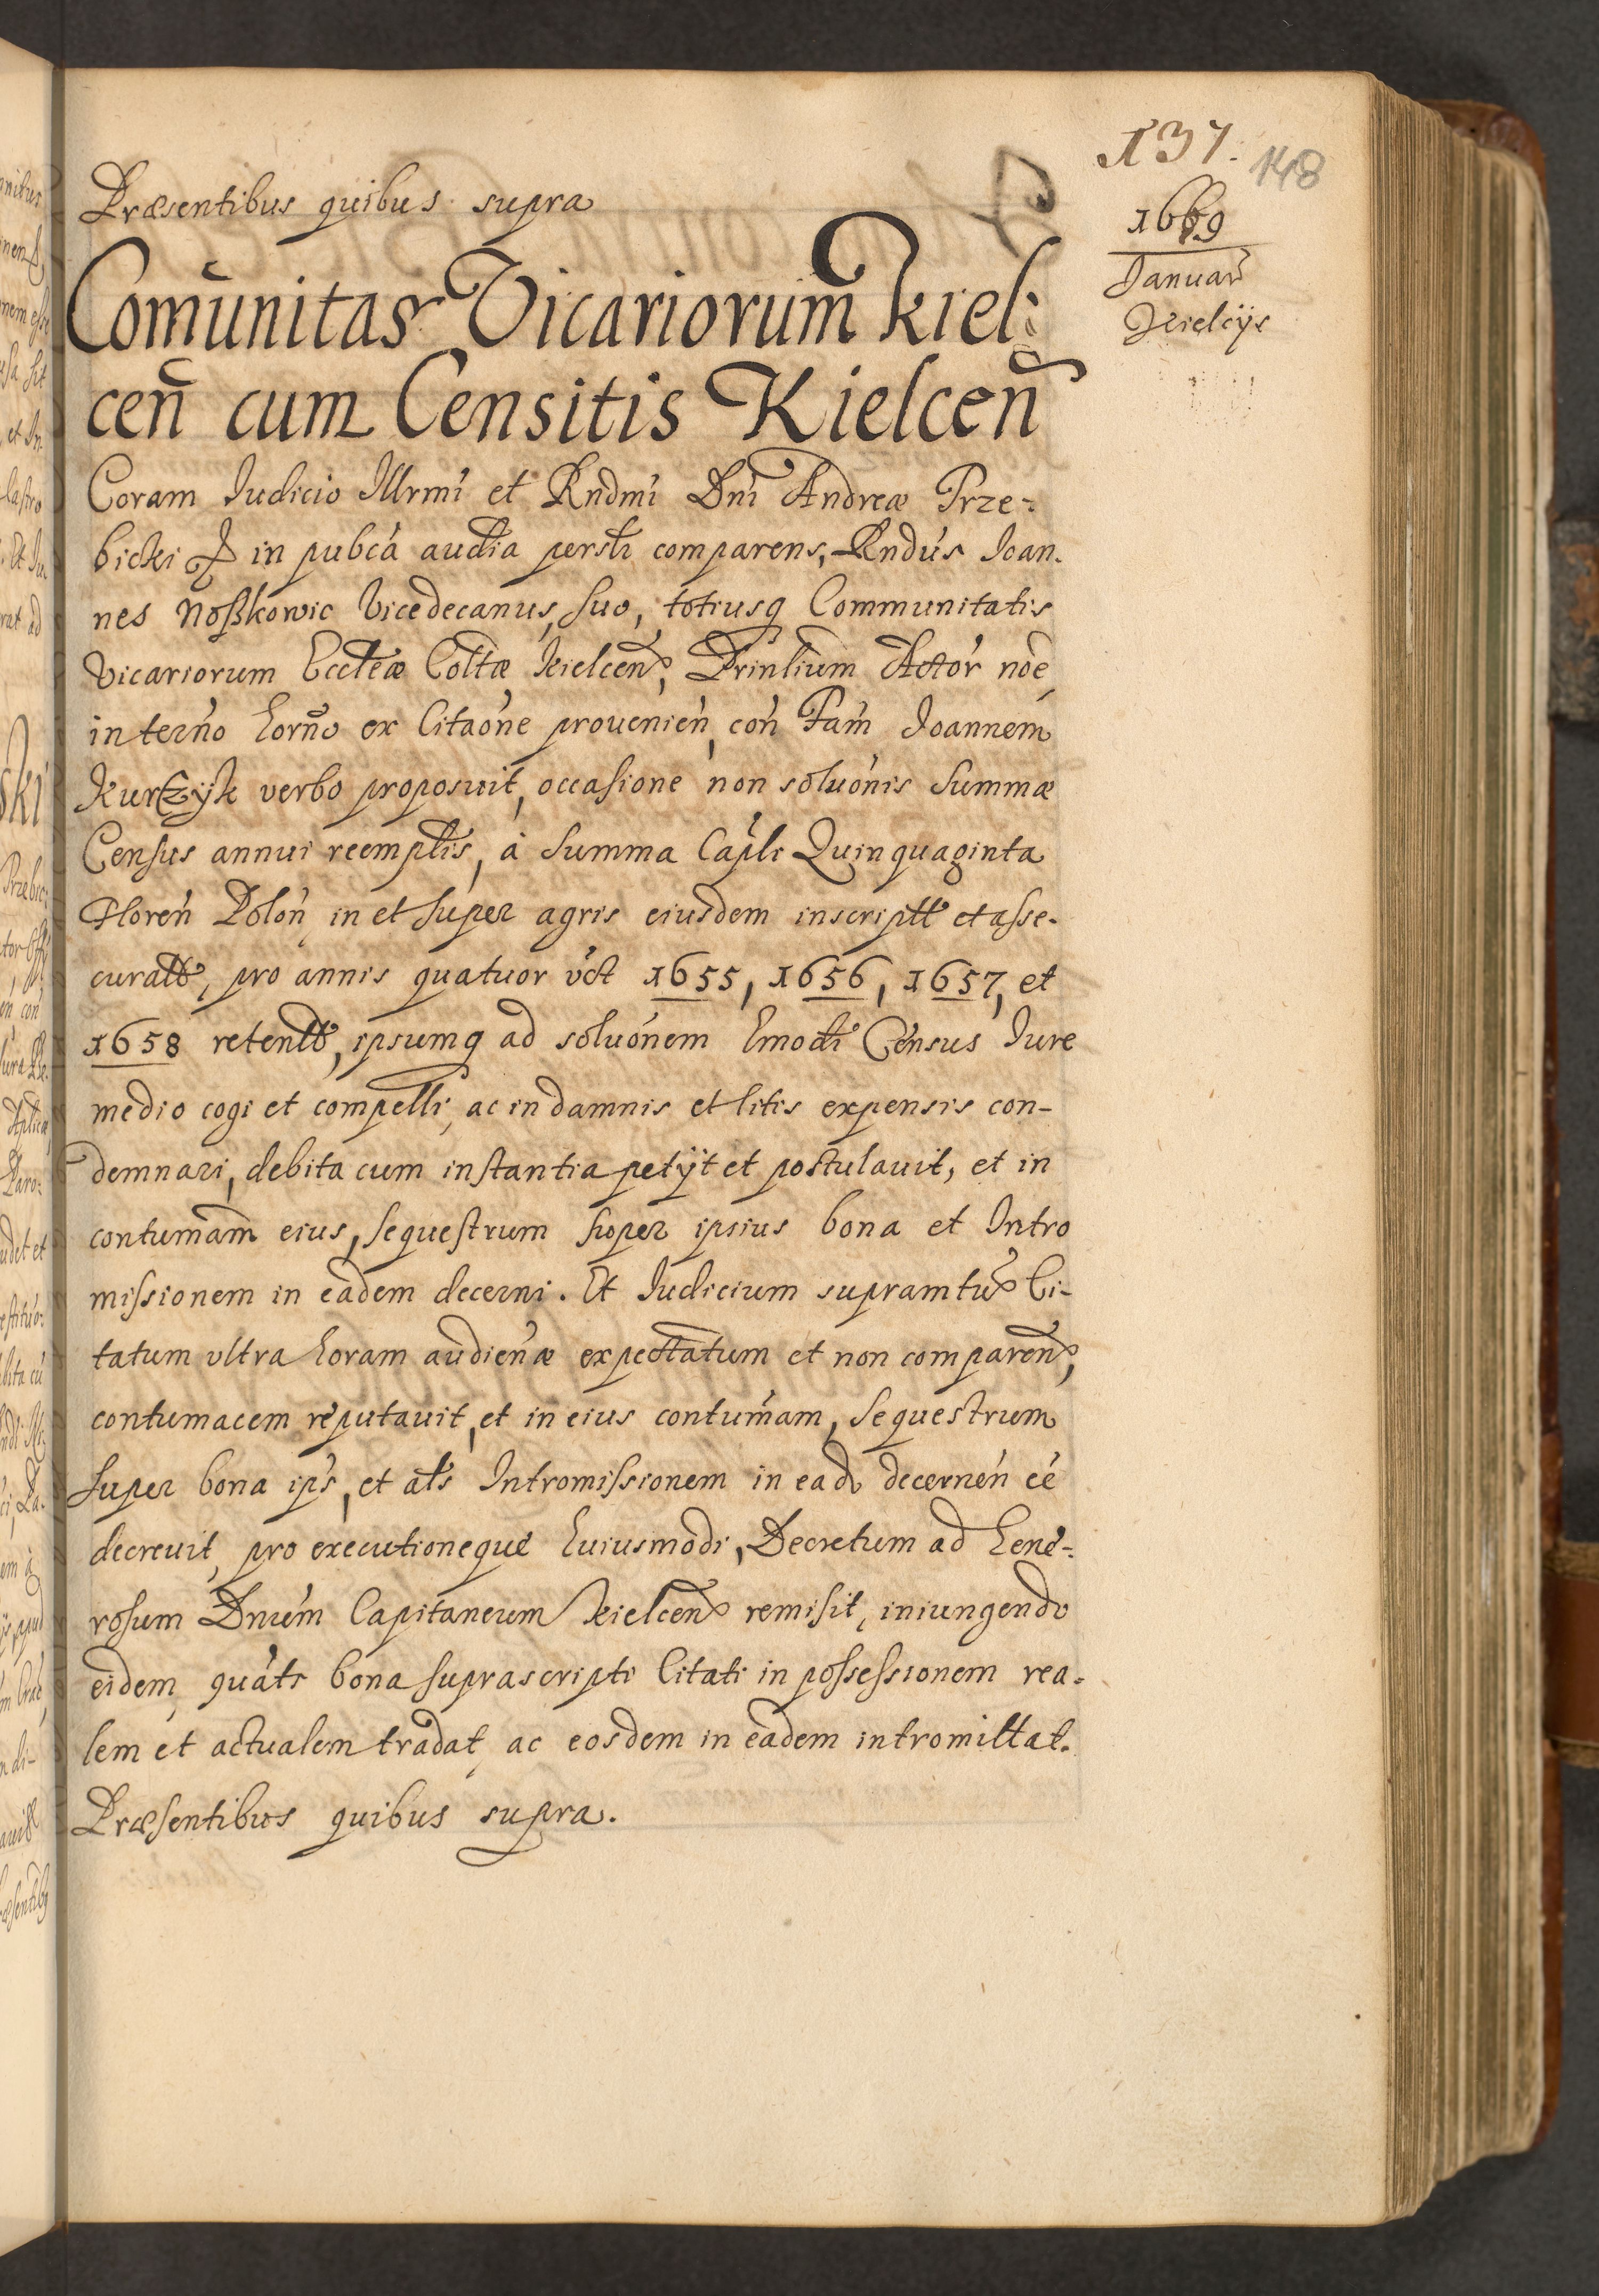 137.
148
1669
Januar̃
Kielcijs
Præsentibus quibus supra
Com̃unitas Vicariorum kiel:
ceñ cum Censitis Kielceñ
Coram Iudicio Illrmi et Rndmi Dni Andreæ Trze-
bicki in pubca audia persli comparens, Rndus Ioan.
nes Noßkowic Vicedecanus, suo, totiusq Communitatis
Vicariorum Eccleæ Coltæ Kielcen, Prinlium Actor noe,
in terno horno ex Citaone provenien, con Fam Joannem
Kurtzyk verbo proposuit, occasione non soluonis summæ
Census annui reemplis, a summa Capli Quinquaginta
Floren Polon in et super agris eiusdem inscriptt et asse-
curatt, pro annis quatuor vct 1655, 1656, 1657, et
1658 retentt, ipsumq ad soluonem hmodi Census Iure
medio cogi et compelli, ac in damnis et litis expensis con-
demnari, debita cum instantia petijt et postulauit, et in
contumam eius, sequestrum super ipsius bona et Intro
missionem in eadem decerni. Et Iudicium supramtu Ci-
tatum vltra horam audienæ expectatum et non comparen,
contumacem reputauit, et in eius contumam, sequestrum
super bona ips, et als Intromissionem in ead decernen ee
decreuit, pro executioneque huiusmodi, Decretum ad Gene-
rosum Dnum Capitaneum Kielcen remisit, iniungendo
eidem, quats bona suprascripti Citati in possessionem rea-
lem et actualem tradat, ac eosdem in eadem intromittat.
Præsentibus quibus supra.